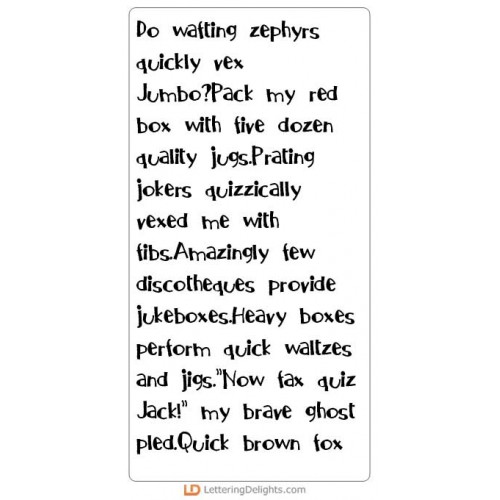 Do wafting zephyrs
quickly vex
Jumbo?Pack my red
box with five dozen
quality jugs.Prating
jokers quizzically
vexed me with
fibs.Amazingly few
discotheques provide
jukeboxes.Heavy boxes
perform quick waltzes
and jigs."Now fax quiz
Jack!" my brave ghost
pled.Quick brown fox
LD LetteringDelights.com